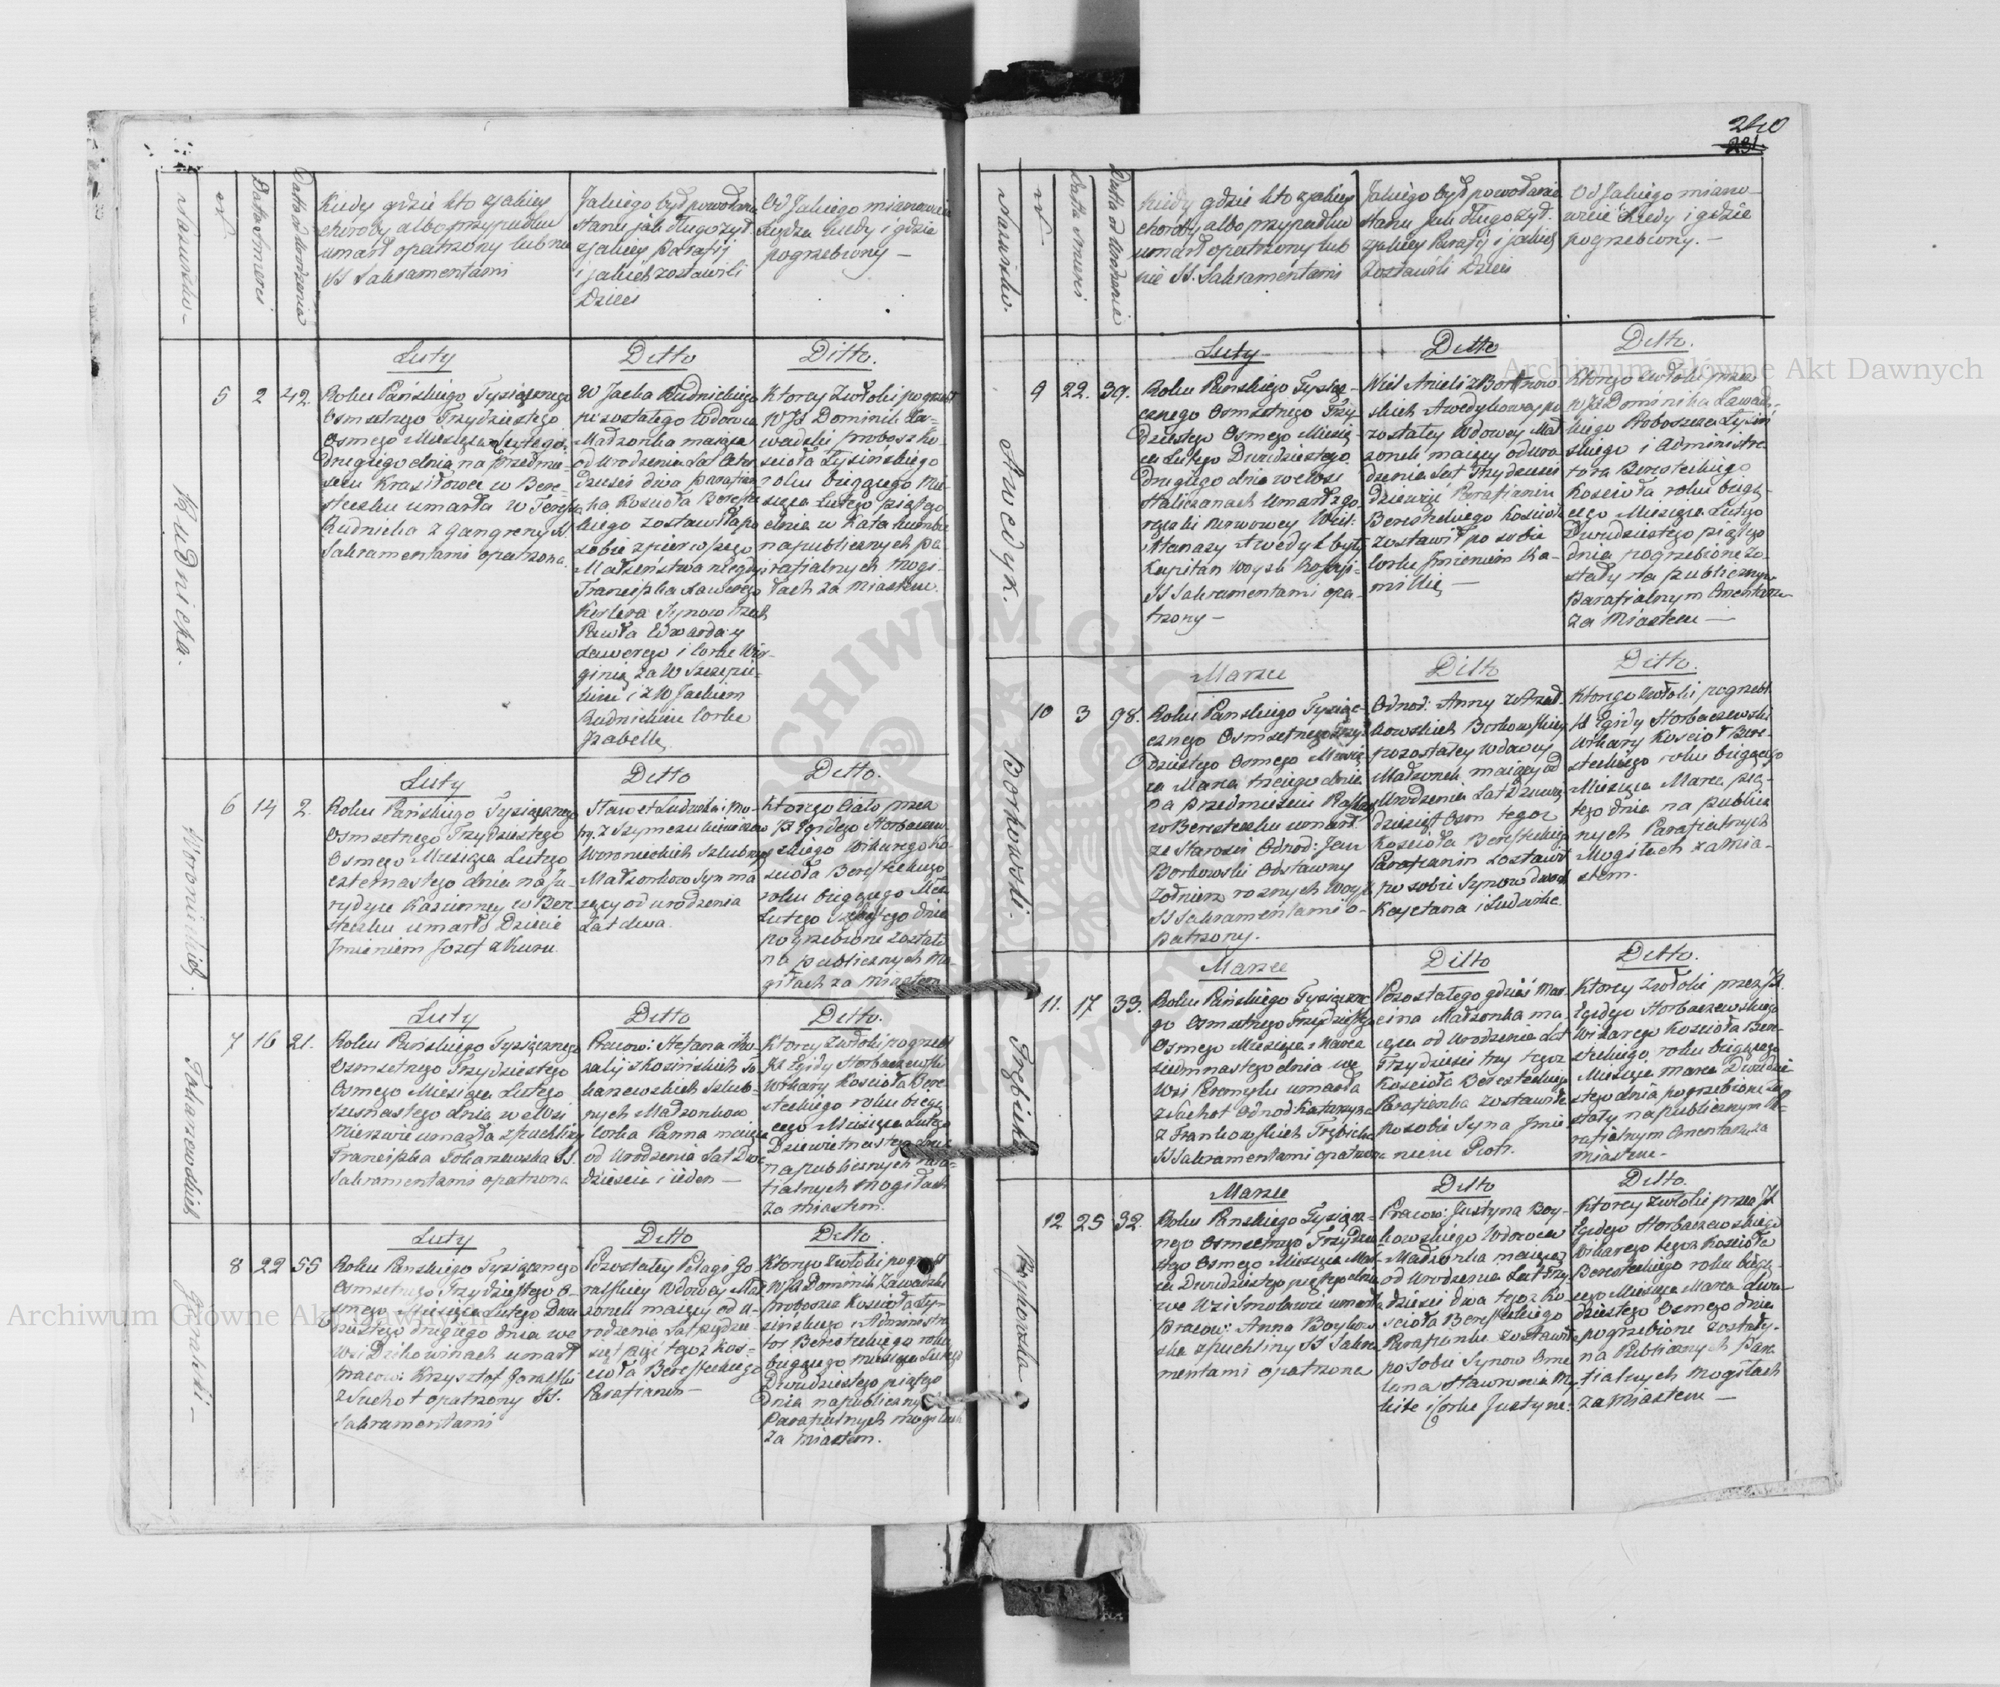 240
231.
Nazwisko
N
Datta Smierci
Datta od Urodzenia
Kiedy gdzie kto z jakiey
choroby albo przypadku
umarł opatrzony lub nie
SS Sakramentami
Jakiego był powołania
stanu jak długo żył
z jakiey Parafij
i jakich zostawili
Dzieci
Od Jakiego mianowicie
Xiędza kiedy i gdzie
pogrzebiony —
Rudnicka.
5 2 42
Luty
Roku Pańskiego Tysiącznego
Osmsetnego Trzydziestego
Osmego Miesiąca Lutego
drugiego dnia na przedmie-
sciu Krasiłowce w Bere-
steczku umarła W Teresa
Rudnicka z Gangreny SS.
Sakramentami opatrzona.
Ditto
W Jacka Rudnickiego
pozostałego Wdowca
Małżonka maiąca
od Urodzenia Lat Czter-
dzieści dwa parafian-
ka Kościoła Berestec-
kiego zostawiła po
sobie z pierwszego
Małżeństwa niegdy
Franciszka Xawerego
Synow trzech
Pawła Edwarda y
Xawerego i Corke Wir-
ginię za W
i z W Jackiem
Rudnickim Corke
Izabellę
Ditto.
Ktorey Zwłoki pogrzebł
W JX Dominik Za-
wadzki proboszcz Ko-
scioła Łysinskiego
roku bieggcego Mie-
siąca Lutego piątego
dnia w Katakumbie
na publicznych pa-
rafialnych mogi-
łach za miastem.
6 14 2.
Luty
Roku Pańskiego Tysiącznego
Osmsetnego Trzydziestego
Osmego Miesiąca Lutego
czternastego dnia na Ju-
rydyce w Bere
steczku umarło Dziecie
Imieniem Jozef z Kuru.
Ditto
Woronieckich Szlubnych
Małżonkow Syn ma
iący od urodzenia
Lat dwa.
Ditto.
Ktorego Ciało przez
JX Egidego Horbaczew-
skiego Wikarego Ko-
scioła Beresteckiego
roku bieggcego Mca
Lutego dnia
pogrzebione zostało
na publicznych mo-
giłach za miastem
7 16 21.
Luty
Roku Pańskiego Tysiącznego
Osmsetnego Trzydziestego
Osmego Miesiąca Lutego
szesnastego dnia we Wsi
Mierzwie umarła z puchliny
Franciszka Tokarzewska SS.
Sakramentami opatrzona
Ditto
Pracow: Stefana i Ro-
zalij z Kosińskich To-
karzewskich Szlub-
nych Małżonkow
Corka Panna maiąca
od Urodzenia Lat Dwa
dzieście i ieden —
Ditto.
Ktorey zwłoki pogrzebł
JX Egidy Horbaczewski
Wikary Kościoła Bere-
steckiego roku biegg
cego Miesiąca Lutego
Dziewietnastego dnia
na publicznych Para-
fialnych mogiłach
za miastem.
Goralski —
8 22 55
Luty
Roku Pańskiego Tysiącznego
Osmsetnego Trzydziestego O-
smego Miesiąca Lutego Dwu
dziestego drugiego dnia we
Wsi Dzikowinach umarł
pracow: Krzysztof Goralski
z Suchot opatrzony SS.
Sakramentami
Ditto
Pozostałey Pelagi Go
ralskiey Wdowey Mał
żonek maiący od u-
rodzenia Lat pięćdzie
siąt pięć tegoż Kos-
cioła Beresteckiego
Parafianin —
Ditto.
Ktorego Zwłoki pogrzebł
W JX Dominik Zawadzki
Proboszcz Kościoła Ły-
sinskiego i Administra
tor Berestecki roku
bieggcego miesiąca Lutego
Dwudziestego piątego
dnia na publicznych
Parafialnych mogiłach
za miastem.
Nazwisko.
N
Datta Smierci
Datta od Urodzenia
Kiedy gdzie kto z jakiey
choroby albo przypadku
umarł opatrzony lub
nie SS. Sakramentami
Jakiego był powołania
stanu jak długo żył.
z jakiey Parafij i jakich
Zostawili Dzieci
Od Jakiego miano-
wicie Kiedy i gdzie
pogrzebiony. —
Awedyk.
9 22. 39.
Luty
Roku Pańskiego Tysią-
cznego Osmsetnego Trzy
Dziestego Osmego Miesią
ca Lutego Dwudziestego
drugiego dnia we Wsi
Haliczanach umarł z go-
rączki nerwowey Wiel:
Atanazy Awedyk były
Kapitan Woysk Rossyi-
SS Sakramentami opa-
trzony —
Ditto
Wiel Anieli z Bortnow
skich Awedykowey po
zostałey Wdowey Mał
żonek maiący od uro
dzenia Lat Trzydzieści
dziewięć Parafianin
Beresteckiego Kościoła
zostawił po sobie
Corke Imieniem Ka-
millę —
Ditto.
Ktorego zwłoki przez
W JX Dominika Zawadz-
kiego Proboszcza Łysin
skiego i Administra
tora Beresteckiego
Kościoła roku biegg-
cego Miesiąca Lutego
Dwudziestego piątego
dnia pogrzebione zo-
stały na publicznym
Parafialnym Cmentarzu
za Miastem —
Borkowski.
10 3 98.
Marzec
Roku Pańskiego Tysiąc-
cznego Osmsetnego Trzy
dziestego Osmego Miesią
ca Marca trzeciego dnia
na przedmieściu
w Beresteczku umarł
ze Starości Odnod: Jan
Borkowski Odstawny
Żołnierz roznych Woysk
SS Sakramentami o-
patrzony.
Ditto
Odnod: Anny
Borkowskiey
pozostałey Wdowey
Małżonek maiący od
Urodzenia Lat Dziewięć
dziesiąt Osm tegoż
Kościoła Beresteckiego
Parafianin Zostawił
po sobie Synow dwoch
Kajetana i Ludwika
Ditto.
Ktorego Zwłoki pogrzebł
JX Egidy Horbaczewski
Wikary Kościoł Bere-
steckiego roku bieggcego
Miesiąca Marca pią-
tego dnia na public
nych Parafialnych
Mogiłach za Mia-
stem.
11. 17 33.
Marzec
Roku Pańskiego Tysiączne
go Osmsetnego Trzydziestego
Osmego Miesiąca Marca
siedmnastego dnia we
Wsi Peremylu umarła
z Suchot Odnod: Katarzyna
z Frankowskich
SS Sakramentami opatrzona
Ditto
Pozostałego gdzieś Mar-
cina Małżonka ma-
iąca od Urodzenia Lat
Trzydzieści trzy tegoż
Kościoła Beresteckiego
Parafianka zostawiła
po sobie Syna Imie-
niem Piotr.
Ditto.
Ktorey zwłoki przez JX.
Egidego Horbaczewskiego
Wikarego Kościoła Bere-
steckiego, roku bieggcego
Miesiąca Marca Dwudzie
stego dnia pogrzebione zo
stały na publicznym Pa-
rafialnym Cmentarzu za
miastem —
Boykowska
12 25 32.
Marzec
Roku Pańskiego Tysiącz-
nego Osmsetnego Trzydzie
stego Osmego Miesiąca Mar-
ca Dwudziestego piątego dnia
we Wsi Smolawie umarła
pracow: Anna Boykow-
ska z puchliny SS Sakra
mentami opatrzona
Ditto
Pracow: Justyna Boy-
kowskiego Wdowca
Małżonka maiąca
od Urodzenia Lat Trzy
dzieści dwa tegoż Ko-
scioła Beresteckiego
Parafianka zostawiła
po Sobie Synow
i Corke Justyne.
Ditto.
Ktorey Zwłoki przez JX
Egidego Horbaczewskiego
Wikarego tegoż Kościoła
Beresteckiego roku biegg-
cego Miesiąca Marca dwu-
dziestego Osmego dnia
pogrzebione zostały
na Publicznych Para
fialnych mogiłach
za Miastem —
Archiwum Główne Akt Dawnych
Archiwum Główne Akt Dawnych